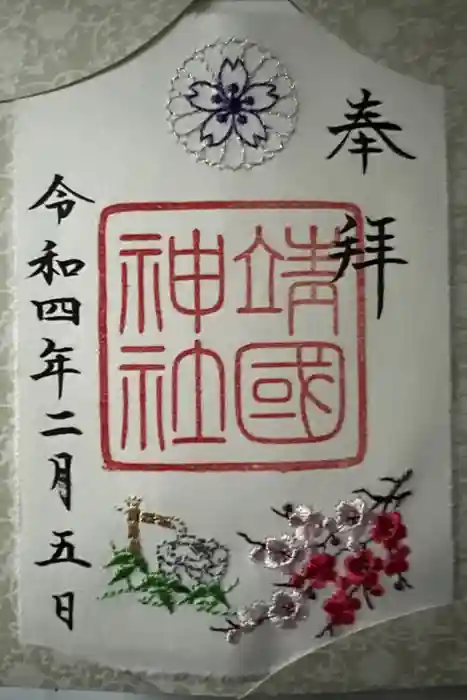 奉拝
靖國
神社
令和四年二月五日